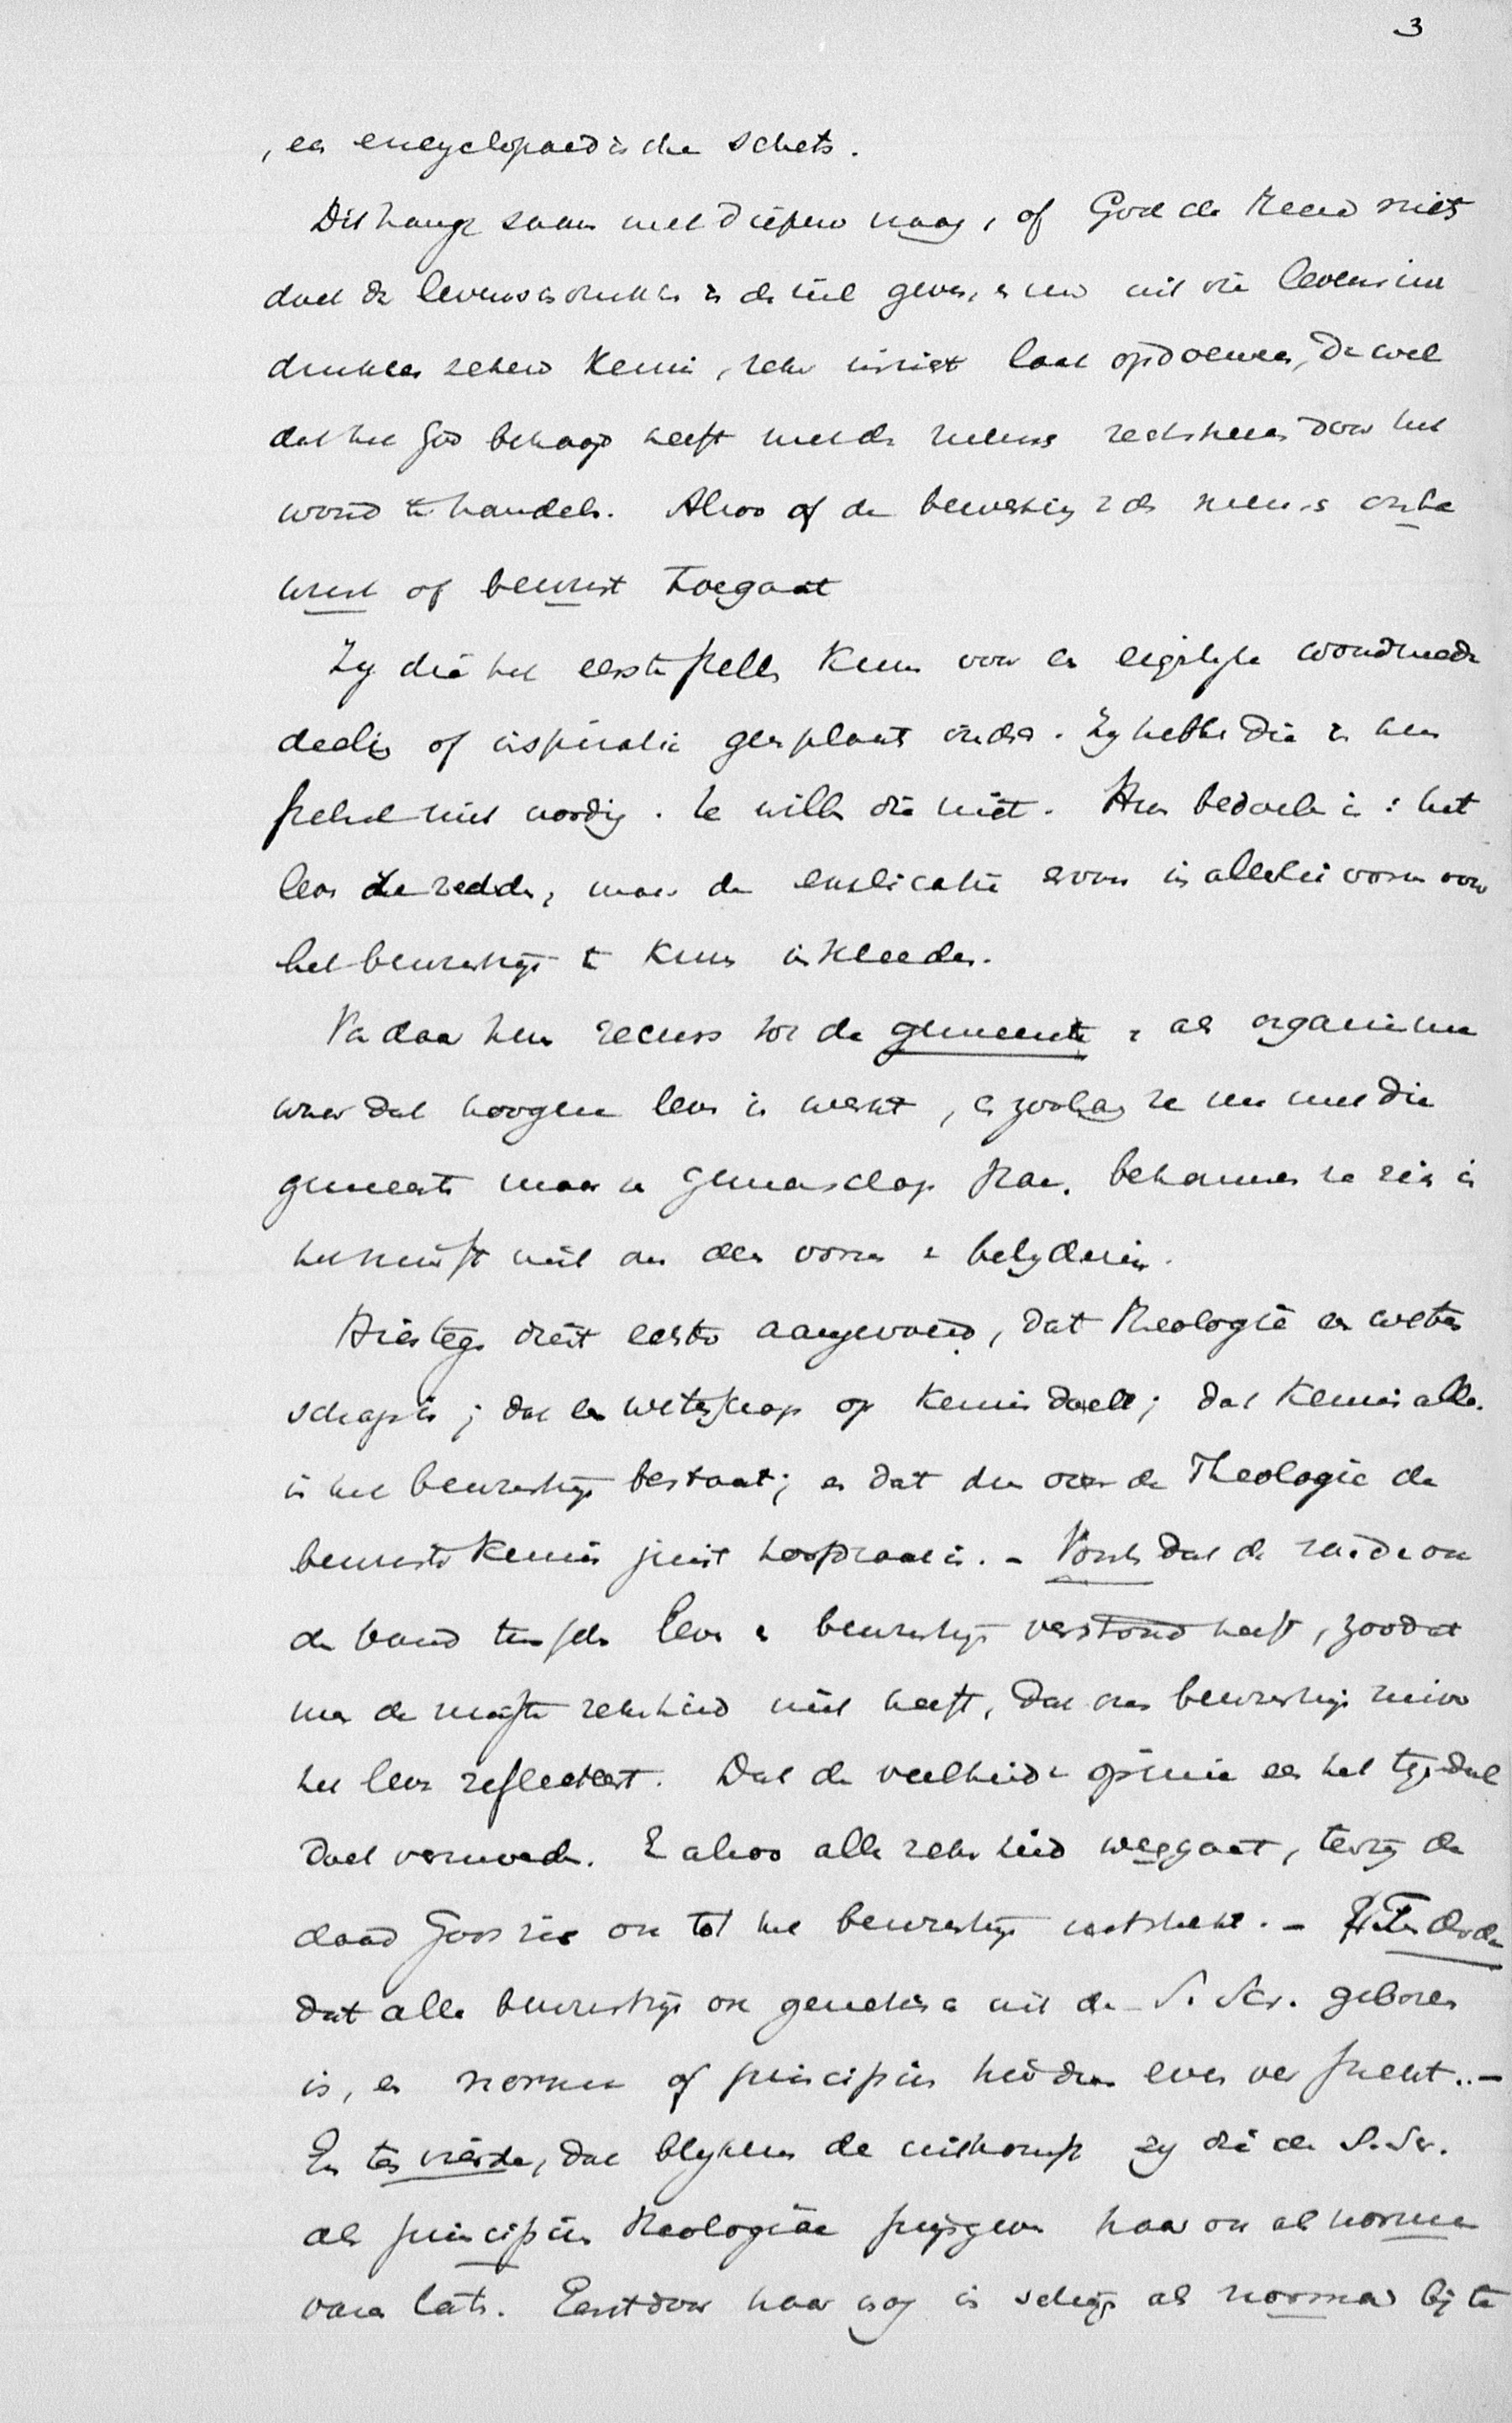 3
, en encyclopaedische schets.
Dit hangt saam met diepere vraag, of God de Heere niets
doet dan levensindrukken in de ziel geven, en nu uit die levensin
drukken zekere kennis, zeker inzicht laat opdoemen, dan wel
dat het God behaagd heeft met den mensch rechtstreeks door het
woord te handelen. Alzoo of de bewerking v. d. mensch onbe
wust of bewust toegaat
Zij die het eerste stellen kunnen voor een eigenlijke woordmede
deeling of inspiratie geen plaats vinden. Zij hebben die in hun
stelsel niet noodig. Ze willen die niet. Hun bedoelen is: het
leven te redden, maar de explicatie ervan in allerlei vorm voor
het bewustzijn te kunnen inkleeden.
Van daar hun recurs tot de gemeente, als organisme
waar dat hoogere leven in werkt, en zoolang ze nu met die
gemeente maar in gemeenschap staan, bekommeren ze zich in
het minst niet om den vorm v. belijdenis.
Hiertegen dient eerst aangevoerd, dat Theologie een weten
schap is; dat een wetenschap op kennis doelt; dat kennis alleen
in het bewustzijn bestaat; en dat dus voor de Theologie de
bewuste kennis juist hoofdzaak is. – Voorts dat de zonde ook
de band tusschen leven en bewustzijn verstoord heeft, zoodat
men de minste zekerheid niet heeft, dat ons bewustzijn zuiver
het leven reflecteert. Dat de veelheid v. opinie eer het tegendeel
doet vermoeden. En alzoo alle zekerheid weggaat, tenzij de
daad Gods zich ook tot het bewustzijn uitstrekt. – Ten derde
dat alle bewustzijn ook genetisch uit de S. Scr. geboren
is, en norma of principium hierdoor even ver strekt. –
En ten vierde, dat blijkens de uitkomst zij die de S. Scr.
als principium theologiae prijsgeven haar ook als norma
varen laten. Eerst door haar nog in schijn als norma bij te